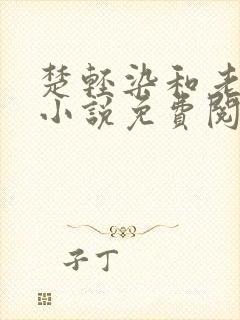 楚轻染和老
小說免費閱
子丁